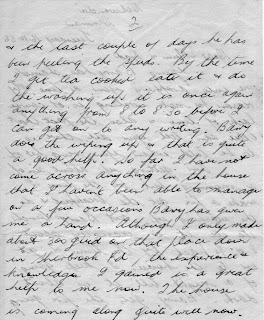 3
& the last couple of days he has
been peeling the spuds. By the time
I get tea cooked eate it & do
the washing up it is once again
anything from 8 to 8 30 before I
can get on to any writing. Barry
does the wiping up & that is quite
a good help. So far I have not
come across anything in the house
that I haven't been able to manage
on a few occasions Barry has given
me a hand. Although I only made
about 300 quid on that place down
in Sherbrook Rd, the experience &
knowledge I gained is a great
help to me now. The house
is coming along quite well now.